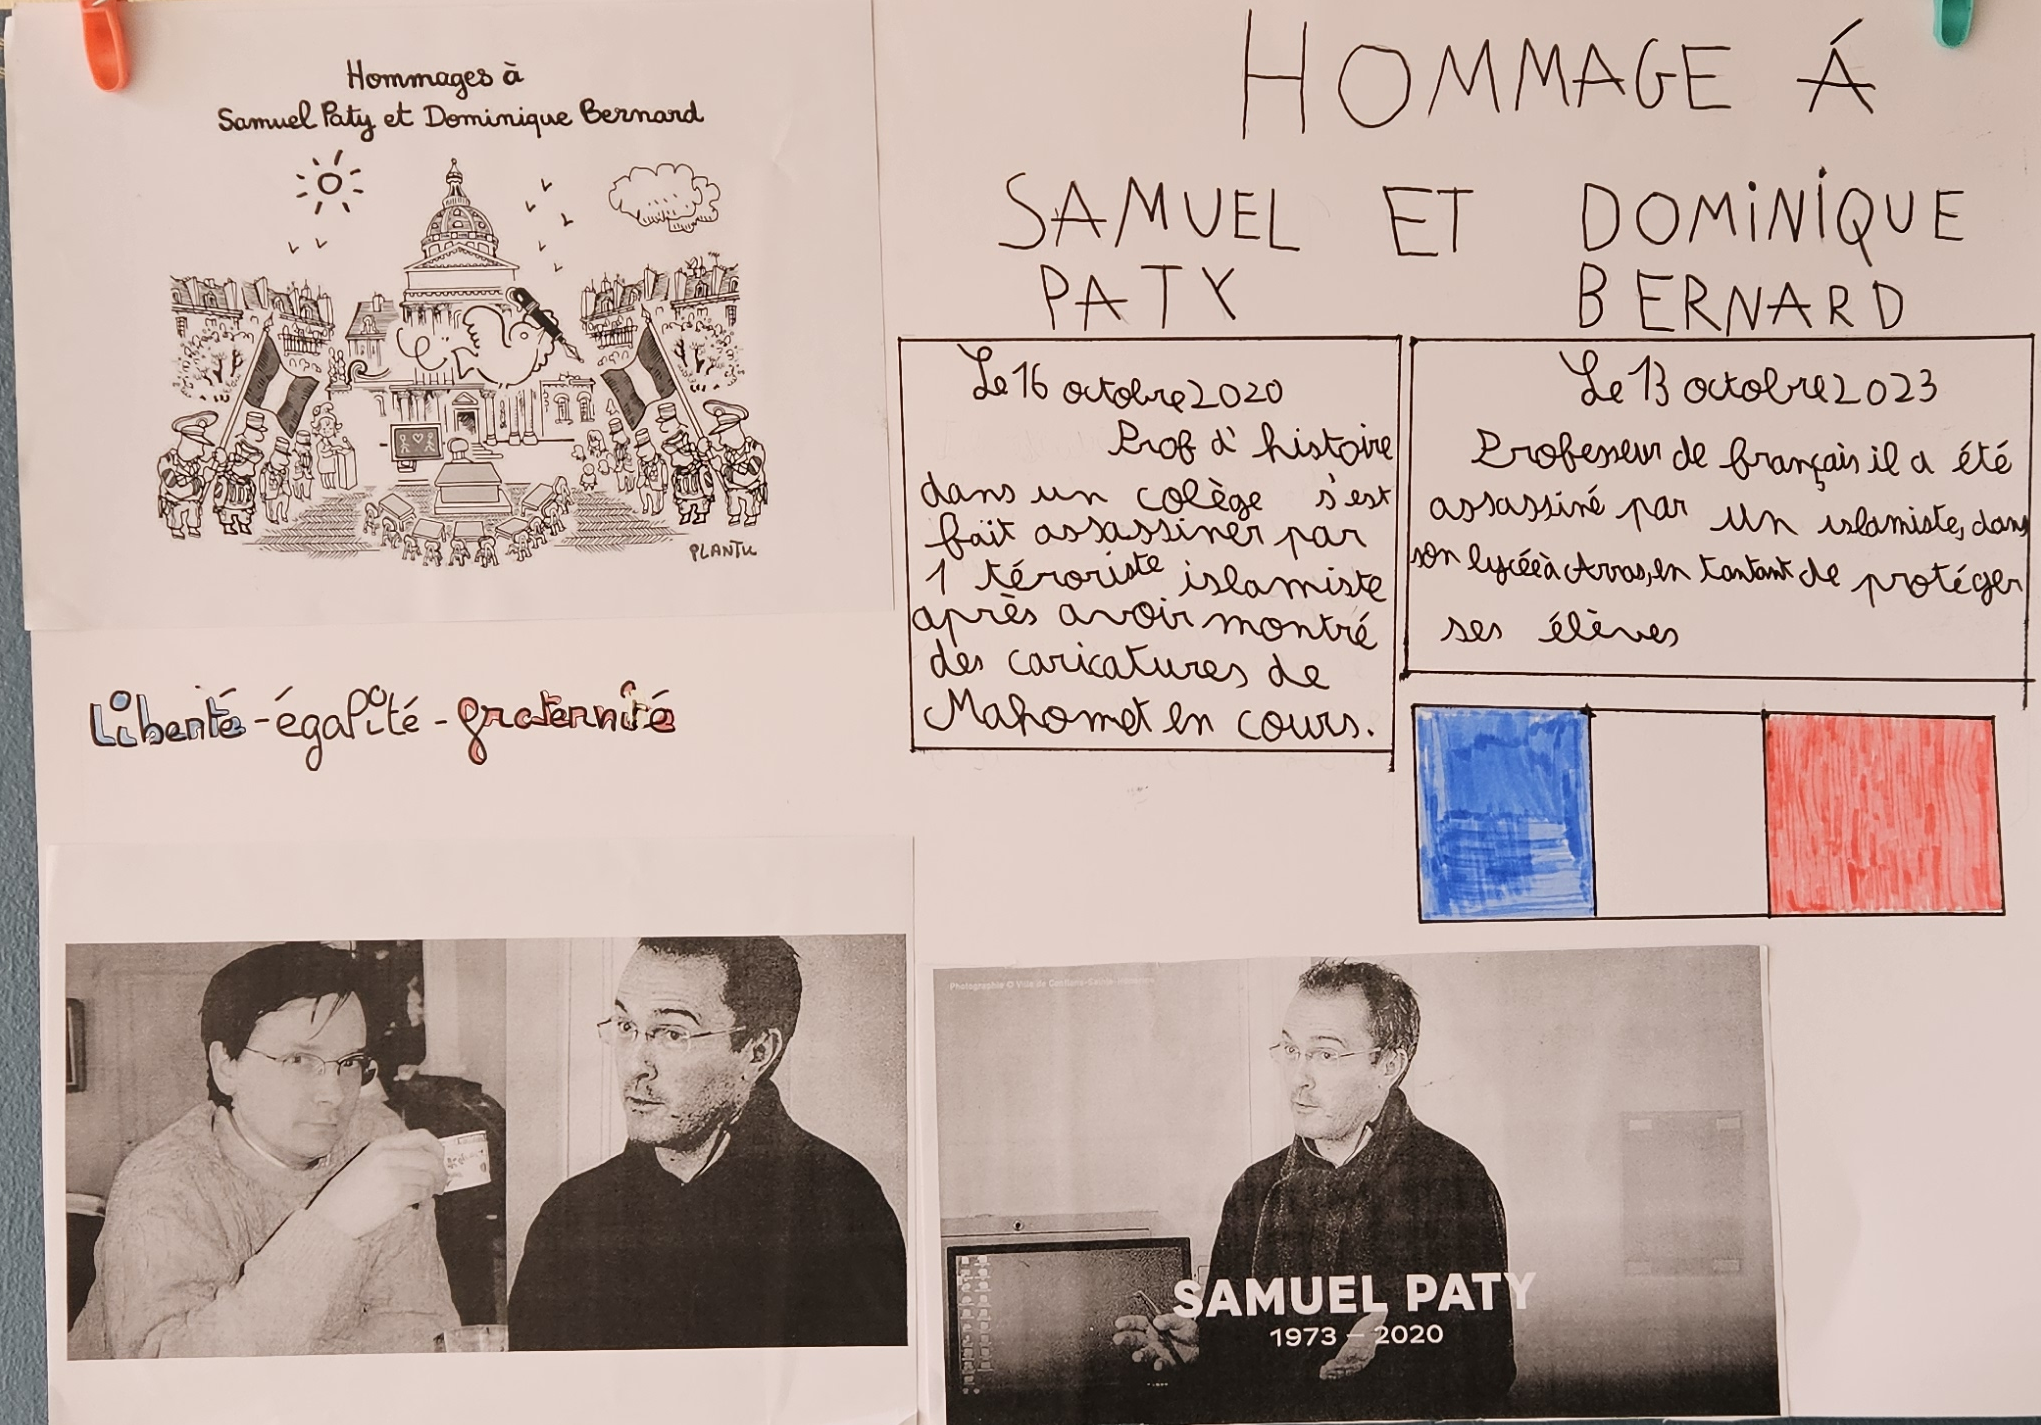 Hommages à
Samuel Paty et Dominique Bernard
PLANTU
Liberté - égalité - fraternité
HOMMAGE Á
SAMUEL ET DOMINIQUE
PATY BERNARD
Le 16 octobre 2020
Prof d'histoire
dans un colège s'est
fait assassiner par
1 téroriste islamiste
après avoir montré
des caricatures de
Mahomet en cours.
Le 13 octobre 2023
Professeur de français il a été
assassiné par un islamiste, dans
son lycée à Arras, en tantant de protéger
ses élèves
Photographie © Ville de Conflans-Sainte-Honorine
SAMUEL PATY
1973 – 2020